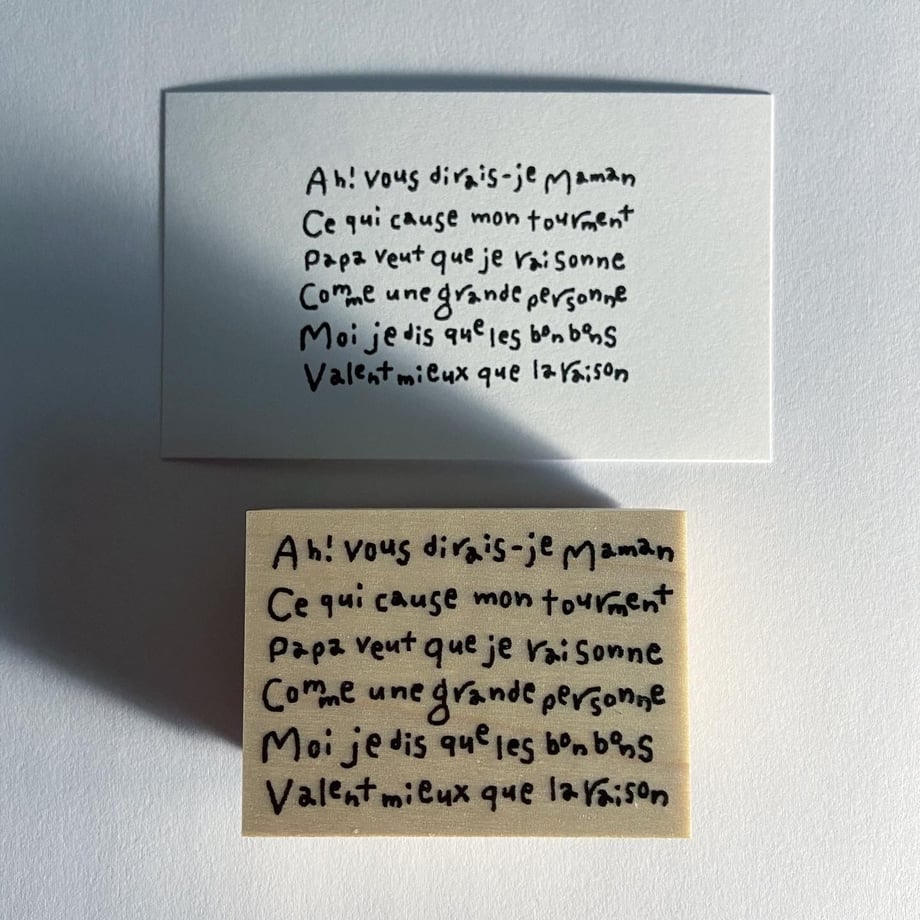 Ah! vous dirais-je Maman
Ce qui cause mon tourment
Papa veut que je raisonne
Comme une grande personne
Moi je dis que les bonbons
Valent mieux que la raison
Ah! vous dirais-je Maman
Ce qui cause mon tourment
Papa veut que je raisonne
Comme une grande personne
Moi je dis que les bonbons
Valent mieux que la raison